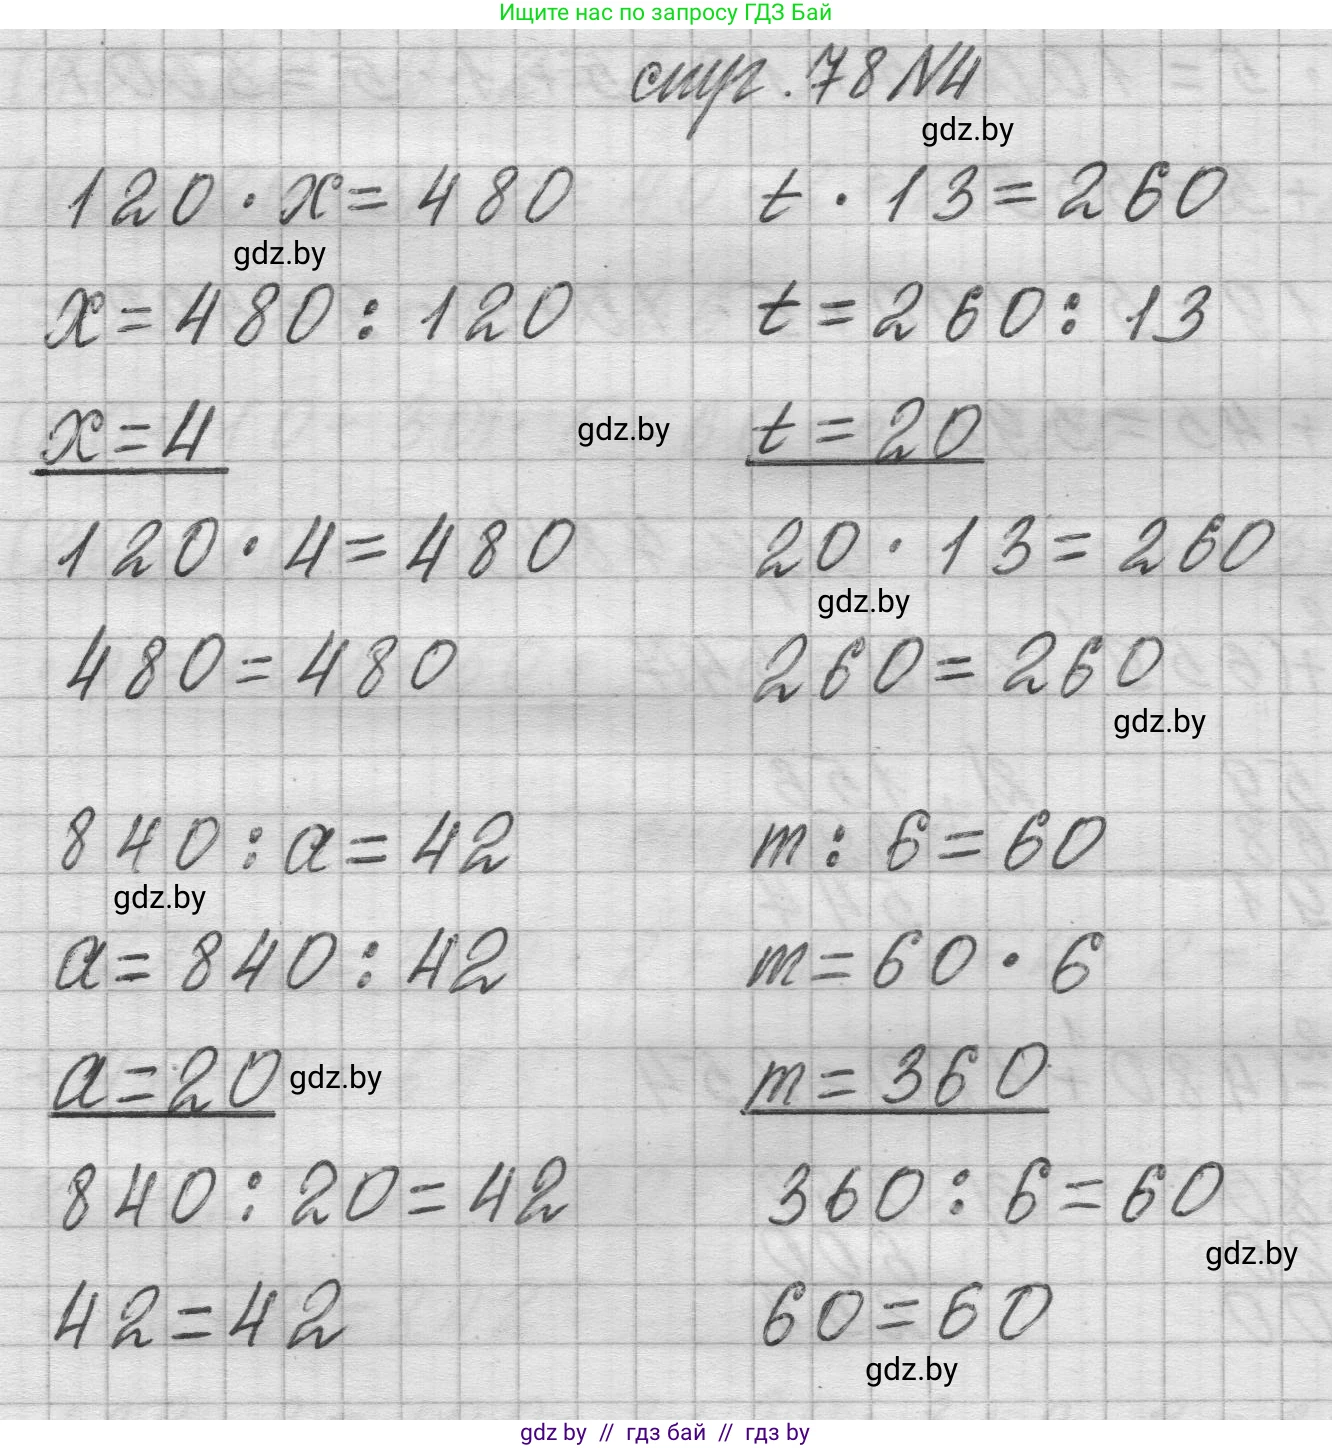 Ищите нас по запросу ГДЗ Бай
стр. 78 №4
gdz.by
120 · x = 480
t · 13 = 260
gdz.by
x = 480 : 120
t = 260 : 13
x = 4
gdz.by
t = 20
120 · 4 = 480
20 · 13 = 260
gdz.by
480 = 480
260 = 260
gdz.by
840 : a = 42
m : 6 = 60
gdz.by
a = 840 : 42
m = 60 · 6
a = 20
gdz.by
m = 360
840 : 20 = 42
360 : 6 = 60
gdz.by
42 = 42
60 = 60
gdz.by
gdz by // гдз бай // гдз by